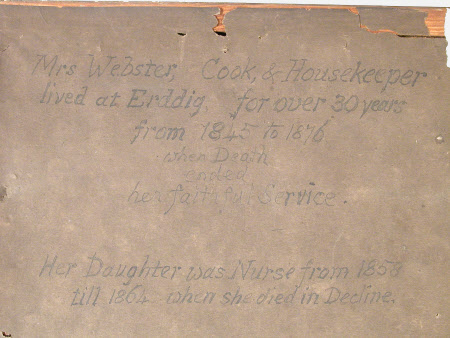 Mrs Webster, Cook, & Housekeeper
lived at Erddig, for over 30 years
from 1845 to 1876
when Death
ended
her faithful Service.
Her Daughter was Nurse from 1858
till 1864 when she died in Decline.